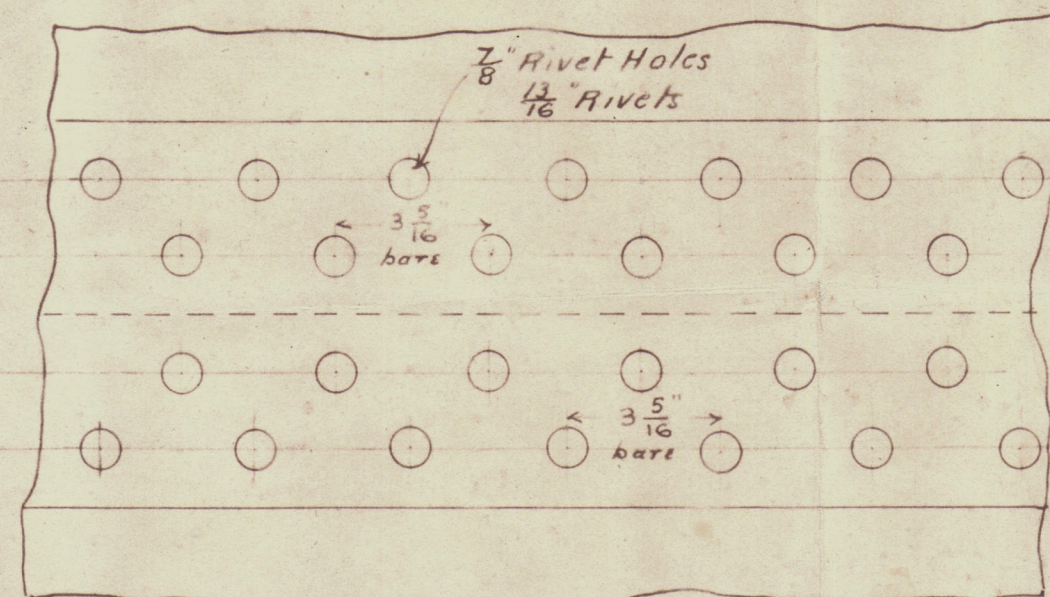 7/8" Rivet Holes
13/16" Rivets
3 5/16
bare
3 5/16"
bare